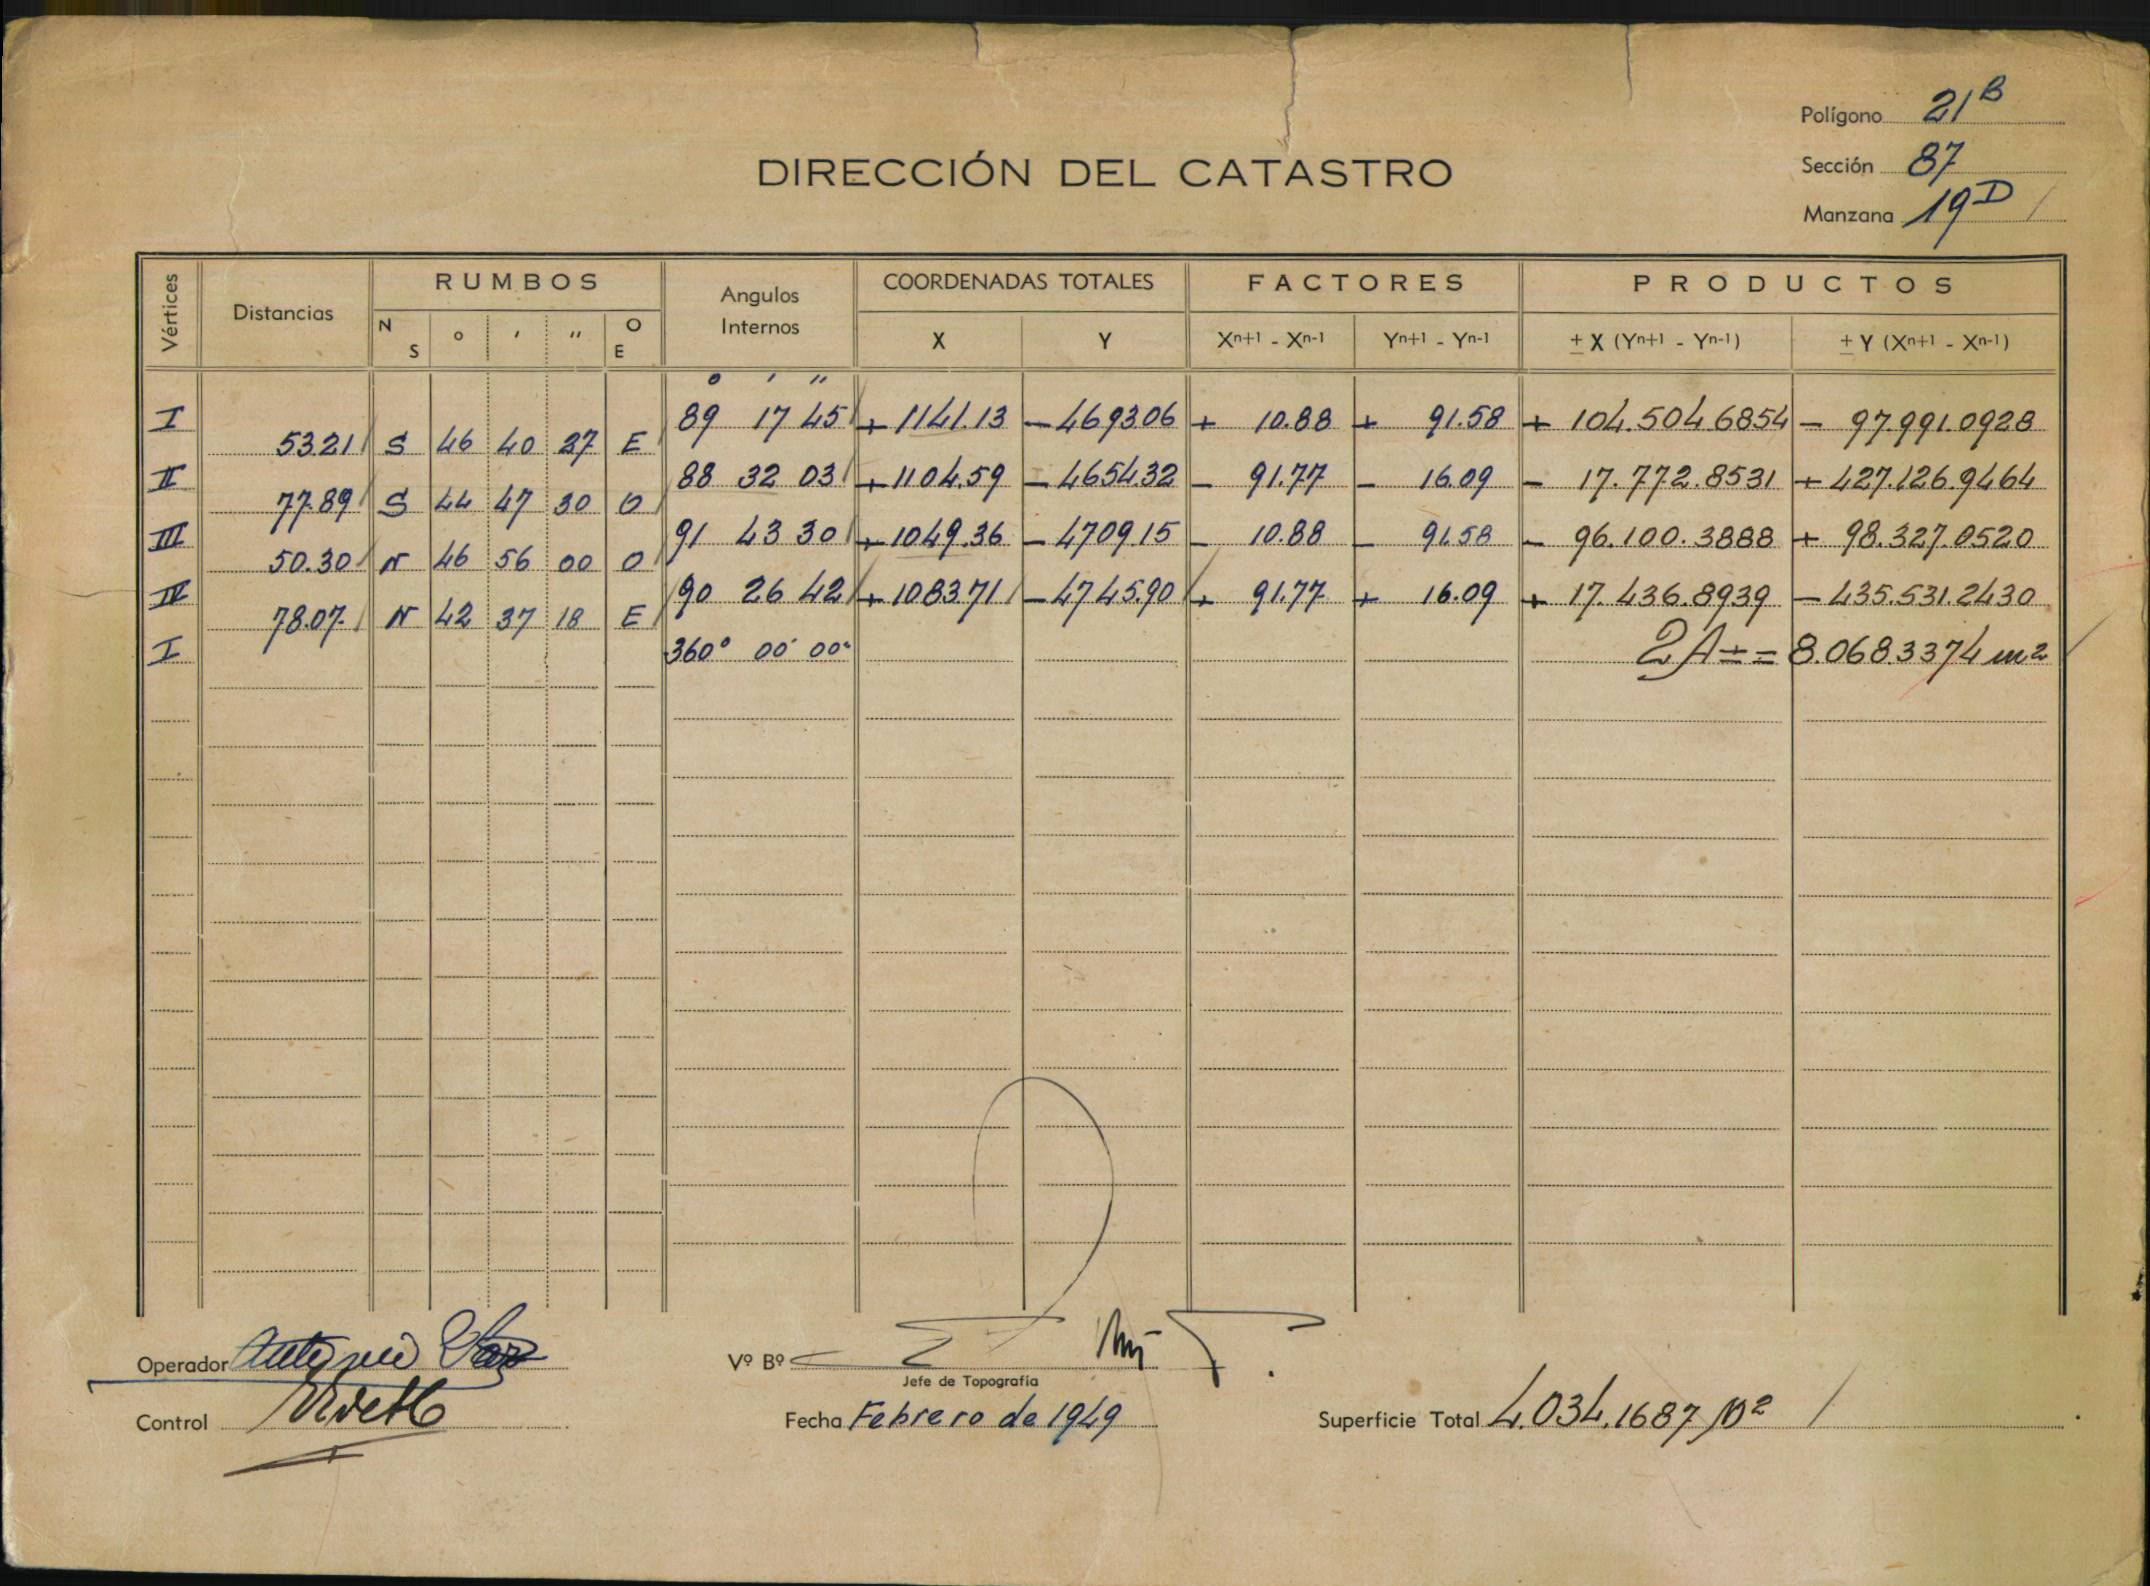 Polígono 21 B
DIRECCIÓN DEL CATASTRO
Sección 87
Manzana 19 D
Vértices Distancias RUMBOS Angulos Internos COORDENADAS TOTALES FACTORES PRODUCTOS
N S ° ' " O E X Y Xn+1 - Xn-1 Yn+1 - Yn-1 ± X (Yn+1 - Yn-1) ± Y (Xn+1 - Xn-1)
° ' "
I 89 17 45 + 1141.13 - 4693.06 + 10.88 + 91.58 + 104.504.6854 - 97.991.0928
53.21 S 46 40 37 E
II 88 32 03 + 1104.59 - 4654.32 - 91.77 - 16.09 - 17.772.8531 + 427.126.9464
77.89 S 44 47 30 O
III 91 43 30 + 1049.36 - 4709.15 - 10.88 - 91.58 - 96.100.3888 + 98.327.0520
50.30 N 46 56 00 O
IV 90 26 42 + 1083.71 - 4745.90 + 91.77 + 16.09 + 17.436.8939 - 435.531.2430
78.07 N 42 37 18 E
I 360° 00' 00" 2A ± = 8.068.3374 m2
Operador Antonio
Vº Bº
Jefe de Topografía
Control
Fecha Febrero de 1949
Superficie Total 4.034.1687 M2